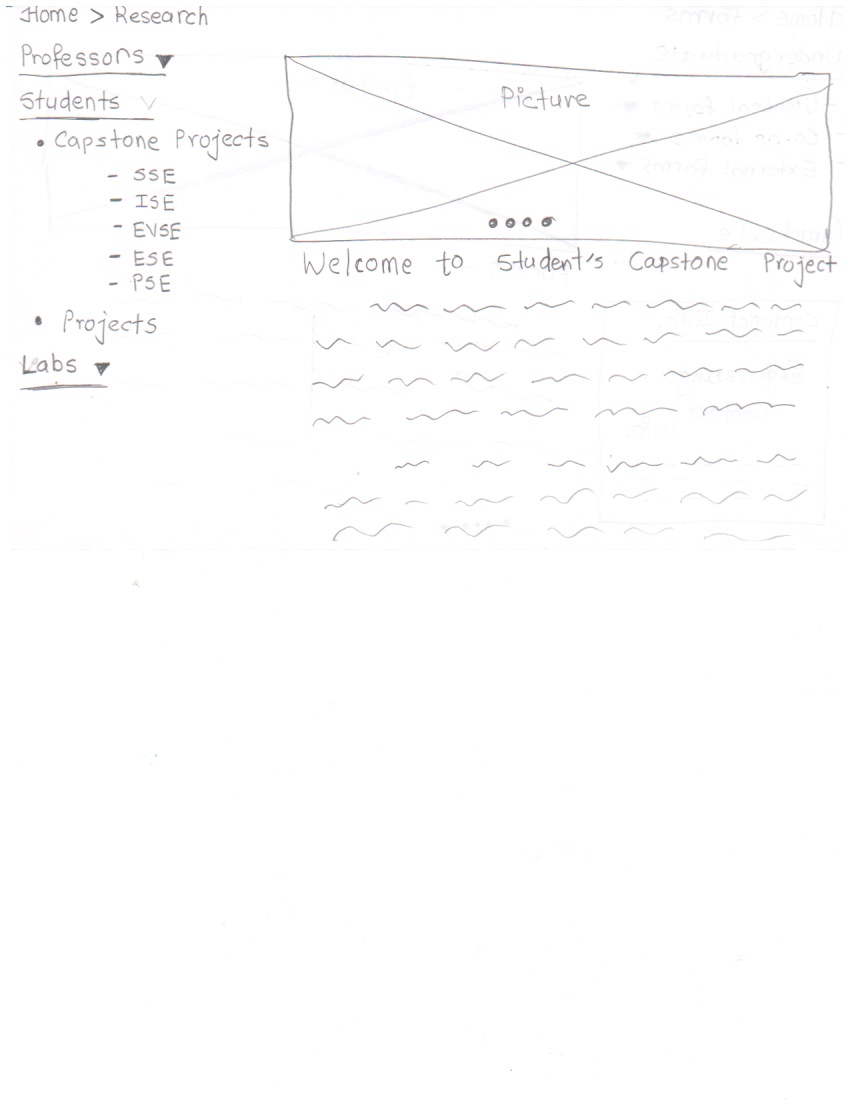 Home > Research
Professors ▼
Students ∨
• Capstone Projects
- SSE
- ISE
- EVSE
- ESE
- PSE
• Projects
Labs ▼
Picture
Welcome to Student's Capstone Project